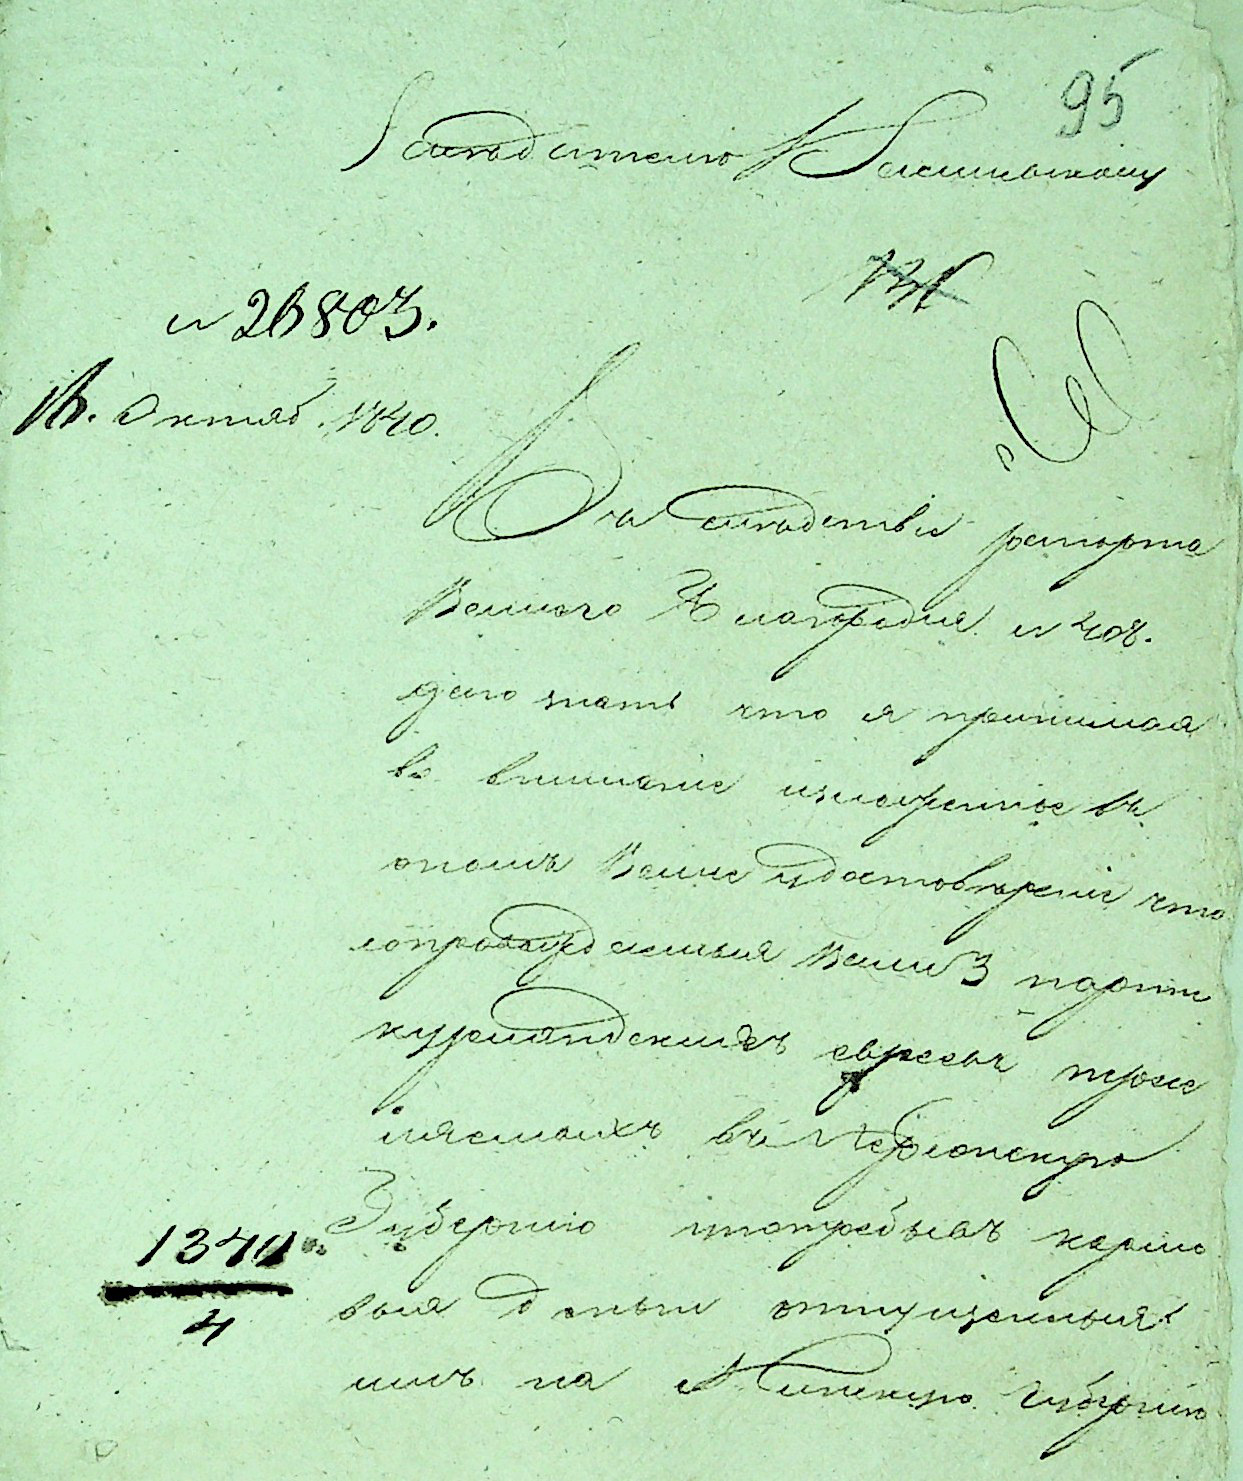 95
Заседателю Калиновскому
№ 26803.
16. Октяб. 1840.
Въ следствие рапорта
Вашего Благородия № 408.
даю знать что я принимая
во внимание изложенное въ
ономъ Ваше удостоверение что
сопровождаемыя Вами 3 парти
курляндскихъ евреевъ пересе
ляемыхъ въ Херсонскую
Губернию употребивъ кормо
выя деньги отпущенныя
имъ на Минскую Губернию
1340
4